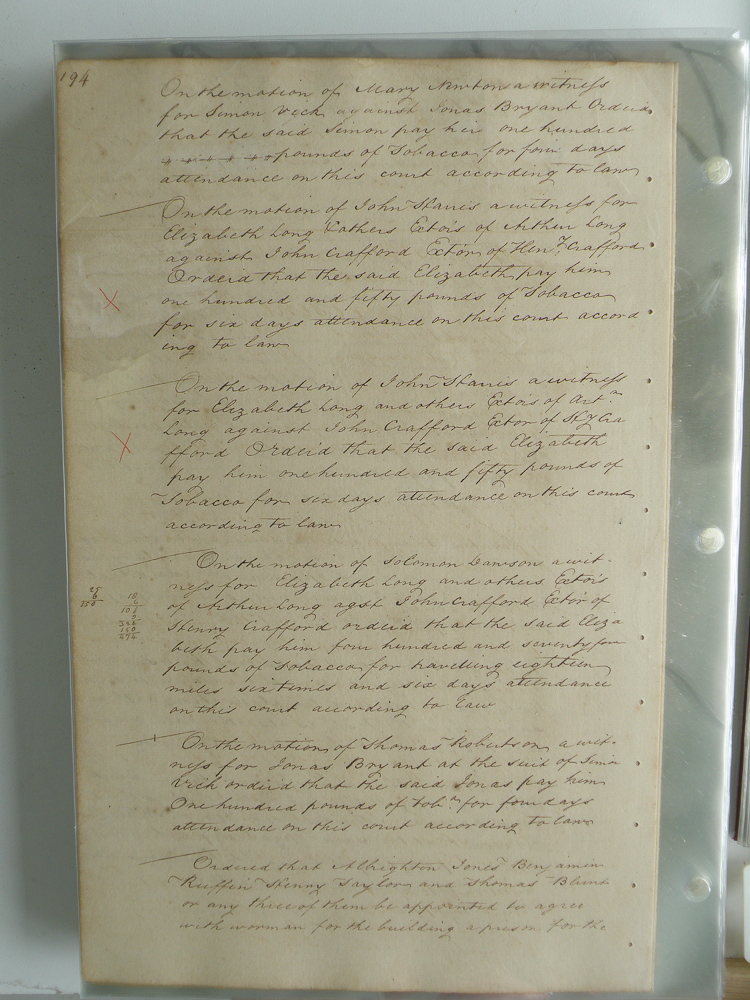 194
On the motion of Mary Newton a witness
for Simon Vick against Jonas Bryant Orderd
that the said Simon pay her one hundred
pounds of Tobacco for four days
attendance on this court according to law
On the motion of John a witness for
Elizabeth Long &others Extors of Arthur Long
against John Crafford Extor of Heny Crafford
Orderd that the said Elizabeth pay him
one hundred and fifty pounds of Tobacco
for six days attendance on this court accord
ing to law
On the motion of John a witness
for Elizabeth Long and others Extors of Artr
Long against John Crafford Extor of Hy Cra
fford Orderd that the said Elizabeth
pay him one hundred and fifty pounds of
Tobacco for six days attendance on this court
according to law
On the motion of Solomon Dawson a wit-
ness for Elizabeth Long and others Extors
of Arthur Long agst John Crafford Extor of
Henry Crafford orderd that the said Eliza
beth pay him four hundred and seventy four
pounds of Tobacco for travelling eighteen
miles six times and six days attendance
on this court according to law
25
6
150
18
6
108
3
324
150
474
On the motion of Thomas Robertson a wit-
ness for Jonas Bryant at the suit of Simon
Vick orderd that the said Jonas pay him
One hundred pounds of Tobo for four days
attendance on this court according to law
Ordered that Albrighton Jones Benjamin
Ruffin Henry Taylor and Thomas Blunt
or any three of them be appointed to agree
with worman for the building a prison for the